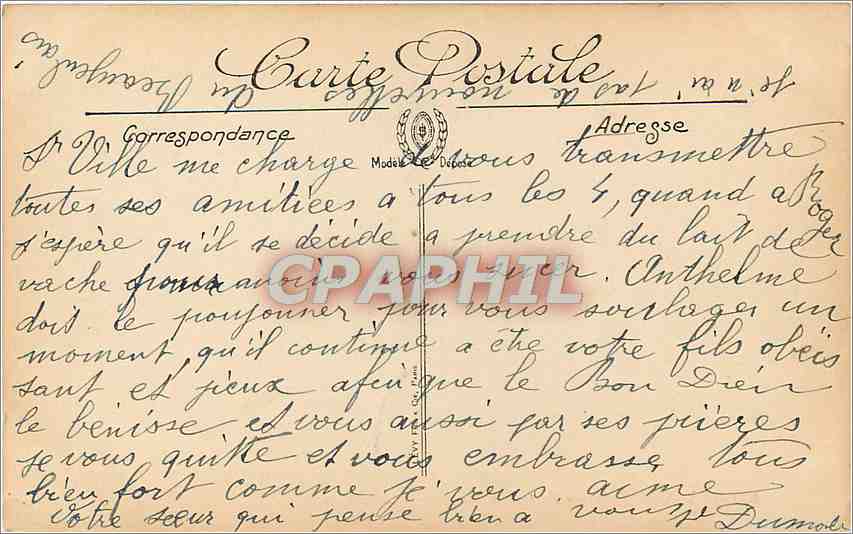 je n'ai pas de nouvelles du Beaujolais
Carte Postale
Correspondance
Adresse
Modèle Déposé
Sr Ville me charge de vous transmettre
toutes ses amitiées a tous les 4, quand a Roger
j'espère qu'il se décide a prendre du lait de
vache pour avoir vous sucer. Anthelme
doit le pouponner pour vous soulager un
moment, qu'il continue a être votre fils obéis
sant et pieux afin que le Bon Dieu
le bénisse et vous aussi par ses prières
je vous quitte et vous embrasse tous
bien fort comme je vous aime
Votre sœur qui pense bien a vous
LÉVY FILS & Cie, Paris
CPAPHIL